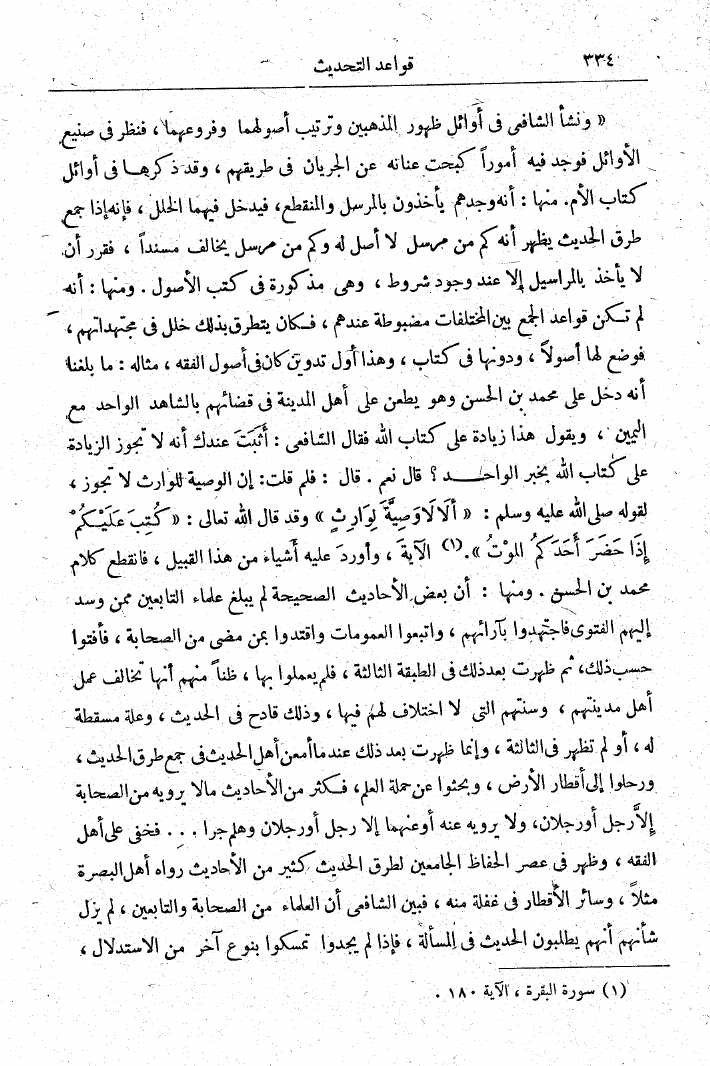 ٣٣٤
قواعد التحديث
« ونشأ الشافعى فى أوائل ظهور المذهبين وترتيب أصولهما وفروعهما ، فنظر فى صنيع
الأوائل فوجد فيه أموراً كبحت عنانه عن الجريان فى طريقهم ، وقد ذكرها فى أوائل
كتاب الأم. منها : أنه وجدهم يأخذون بالمرسل والمنقطع، فيدخل فيهما الخلل ، فإنه إذا جمع
طرق الحديث يظهر أنه كم من مرسل لا أصل له وكم من مرسل يخالف مسنداً ، فقرر أن
لا يأخذ بالمراسيل إلا عند وجود شروط ، وهى مذكورة فى كتب الأصول . ومنها : أنه
لم تكن قواعد الجمع بين المختلفات مضبوطة عندهم ، فكان يتطرق بذلك خلل فى مجتهداتهم ،
فوضع لها أصولاً ، ودونها فى كتاب ، وهذا أول تدوين كان فى أصول الفقه ، مثاله : ما بلغنا
أنه دخل على محمد بن الحسن وهو يطعن على أهل المدينة فى قضائهم بالشاهد الواحد مع
اليمين ، ويقول هذا زيادة على كتاب الله فقال الشافعى : أثبَتَ عندك أنه لا تجوز الزيادة
على كتاب الله بخبر الواحد ؟ قال نعم . قال : فلم قلت: إن الوصية للوارث لا تجوز ،
لقوله صلى الله عليه وسلم : « أَلَا لَا وَصِيَّةَ لِوَارِثٍ » وقد قال الله تعالى : « كُتِبَ عَلَيْكُمْ
إِذَا حَضَرَ أَحَدَكُمُ الموْتُ ».(١) الآيةَ ، وأورد عليه أشياء من هذا القبيل ، فانقطع كلام
محمد بن الحسن . ومنها : أن بعض الأحاديث الصحيحة لم يبلغ علماء التابعين ممن وسد
إليهم الفتوى فاجتهدوا بآرائهم ، واتبعوا العمومات واقتدوا بمن مضى من الصحابة ، فأفتوا
حسب ذلك، ثم ظهرت بعد ذلك فى الطبقة الثالثة ، فلم يعملوا بها ، ظناً منهم أنها تخالف عمل
أهل مدينتهم ، وسنتهم التى لا اختلاف لهم فيها ، وذلك قادح فى الحديث ، وعلة مسقطة
له ، أو لم تظهر فى الثالثة ، وإنما ظهرت بعد ذلك عندما أمعن أهل الحديث فى جمع طرق الحديث ،
ورحلوا إلى أقطار الأرض ، وبحثوا عن حملة العلم، فكثر من الأحاديث مالا يرويه من الصحابة
إلاَّ رجل أورجلان، ولا يرويه عنه أوعنهما إلا رجل أورجلان وهلم جرا . . . فخفى على أهل
الفقه ، وظهر فى عصر الحفاظ الجامعين لطرق الحديث كثير من الأحاديث رواه أهل البصرة
مثلاً ، وسائر الأقطار فى غفلة منه ، فبين الشافعى أن العلماء من الصحابة والتابعين ، لم يزل
شأنهم أنهم يطلبون الحديث فى المسألة ، فإذا لم يجدوا تمسكوا بنوع آخر من الاستدلال ،
(١) سورة البقرة ، الآية ١٨٠ .